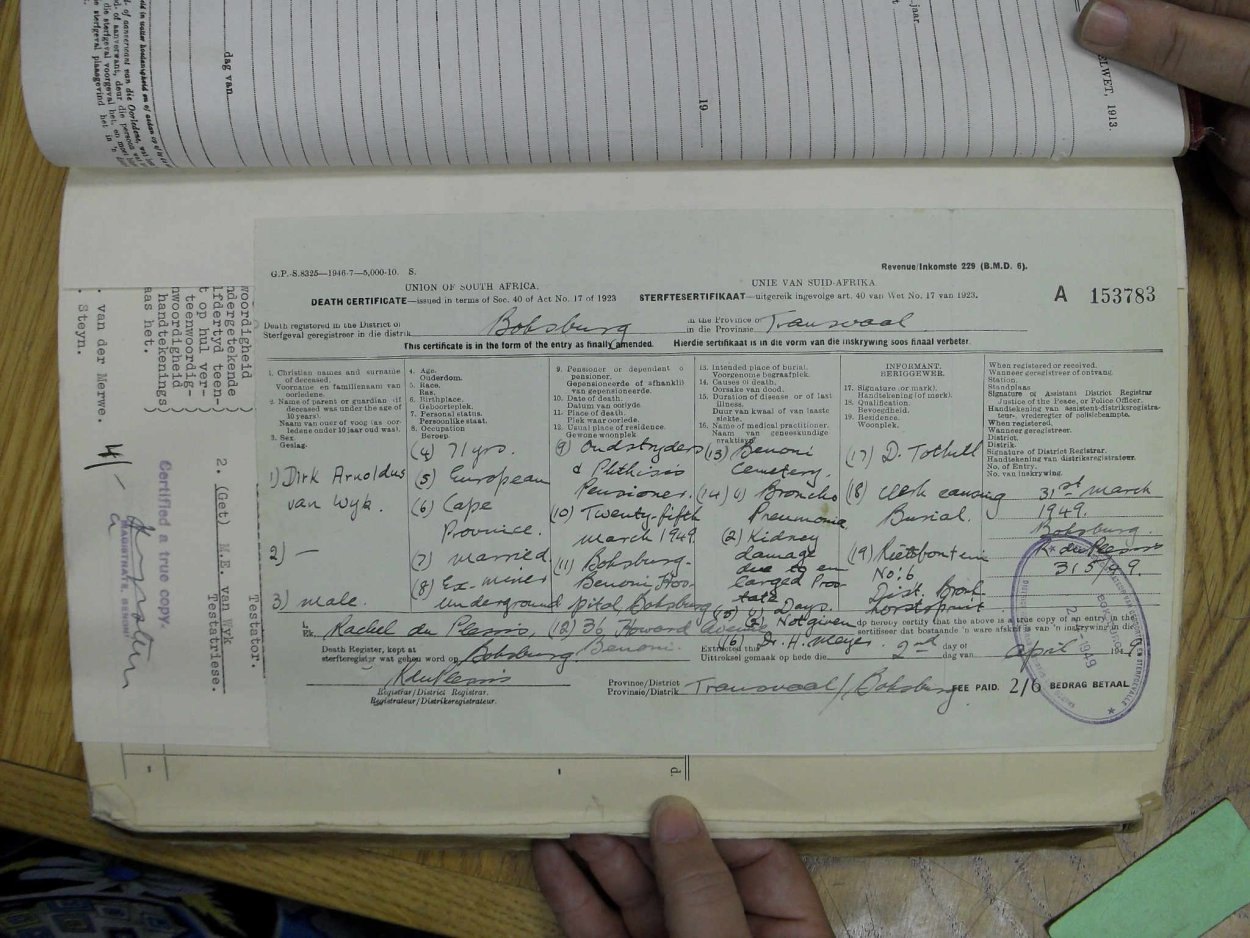 dag van
19
jaar.
ELWET, 1913.
G.P.-S.8325—1946-7—5,000-10. S.
Revenue/Inkomste 229 (B.M.D. 6).
UNION OF SOUTH AFRICA.
UNIE VAN SUID-AFRIKA.
DEATH CERTIFICATE—issued in terms of Sec. 40 of Act No. 17 of 1923
STERFTESERTIFIKAAT—uitgereik ingevolge art. 40 van Wet No. 17 van 1923.
A 153783
Death registered in the District of
Sterfgeval geregistreer in die distrik
Boksburg
in the Province of
in die Provinsie
Transvaal
This certificate is in the form of the entry as finally amended. Hierdie sertifikaat is in die vorm van die inskrywing soos finaal verbeter.
1. Christian names and surname
of deceased.
Voorname en familienaam van
oorledene.
2. Name of parent or guardian (if
deceased was under the age of
10 years).
Naam van ouer of voog (as oor-
ledene onder 10 jaar oud was).
3. Sex.
Geslag.
1) Dirk Arnoldus
van Wyk.
2) —
3) male.
4. Age.
Ouderdom.
5. Race.
Ras.
6. Birthplace.
Geboorteplek.
7. Personal status.
Persoonlike staat.
8. Occupation
Beroep.
(4) 71 yrs.
(5) European
(6) Cape
Province.
(7) married
(8) Ex-miner
underground
9. Pensioner or dependent o
pensioner.
Gepensioneerde of afhankli
van gepensioneerde.
10. Date of death.
Datum van oorlyde
11. Place of death.
Plek van oorlyde.
12. Usual place of residence.
Gewone woonplek
(9) Oudstryders
& Phthisis
Pensioner.
(10) Twenty-fifth
march 1949.
(11) Boksburg-
Benoni Hos-
pital, Boksburg
(12) 36 Howard Avenue
Benoni.
13. Intended place of burial.
Voorgenome begraafplek.
14. Causes of death.
Oorsake van dood.
15. Duration of disease or of last
illness.
Duur van kwaal of van laaste
siekte.
16. Name of medical practitioner.
Naam van geneeskundige
praktisyn.
(13) Benoni
Cemetery.
(14) (1) Broncho
Pneumonia
(2) Kidney
damage
due to en
larged Pros
tate
(15) (1) Days.
(2) Not given
(16) Dr. H. Meyer.
INFORMANT.
BERIGGEWER.
17. Signature (or mark).
Handtekening (of merk).
18. Qualification.
Bevoegdheid.
19. Residence.
Woonplek.
(17) D. Tothill
(18) Clerk causing
Burial.
(19) Rietfontein
No: 6
Dist. Bronk
horstspruit
When registered or received.
Wanneer geregistreer of ontvang.
Station.
Standplaas
Signature of Assistant District Registrar
Justice of the Peace, or Police Officer.
Handtekening van assistent-distriksregistra-
teur-, vrederegter of polisiebeampte.
When registered.
Wanneer geregistreer.
District.
Distrik.
Signature of District Registrar.
Handtekening van distriksregistrateur.
No. of Entry.
No. van inskrywing.
31st march
1949.
Boksburg.
R. du Plessis
315/49.
I,
Ek,
Rachel du Plessis,
do hereby certify that the above is a true copy of an entry in the
sertifiseer dat bostaande 'n ware afskrif is van 'n inskrywing in die
Death Register, kept at
sterfteregister wat gehou word op
Boksburg.
Extracted this
Uittreksel gemaak op hede die
2nd
day of
dag van
April 1949
R du Plessis
Registrar/District Registrar.
Registrateur/Distriksregistrateur.
Province/District
Provinsie/Distrik
Transvaal/Boksburg
FEE PAID. 2/6 BEDRAG BETAAL
woordigheid
ndergetekende
lfdertyd teen-
t op hul ver-
teenwoordig-
nwoordigheid
handtekenings
aas het.
. van der Merwe.
. Steyn.
4/-
Certified a true copy.
MAGISTRATE, BENONI
Testator.
2. (Get) M.E. van Wyk
Testatriese.